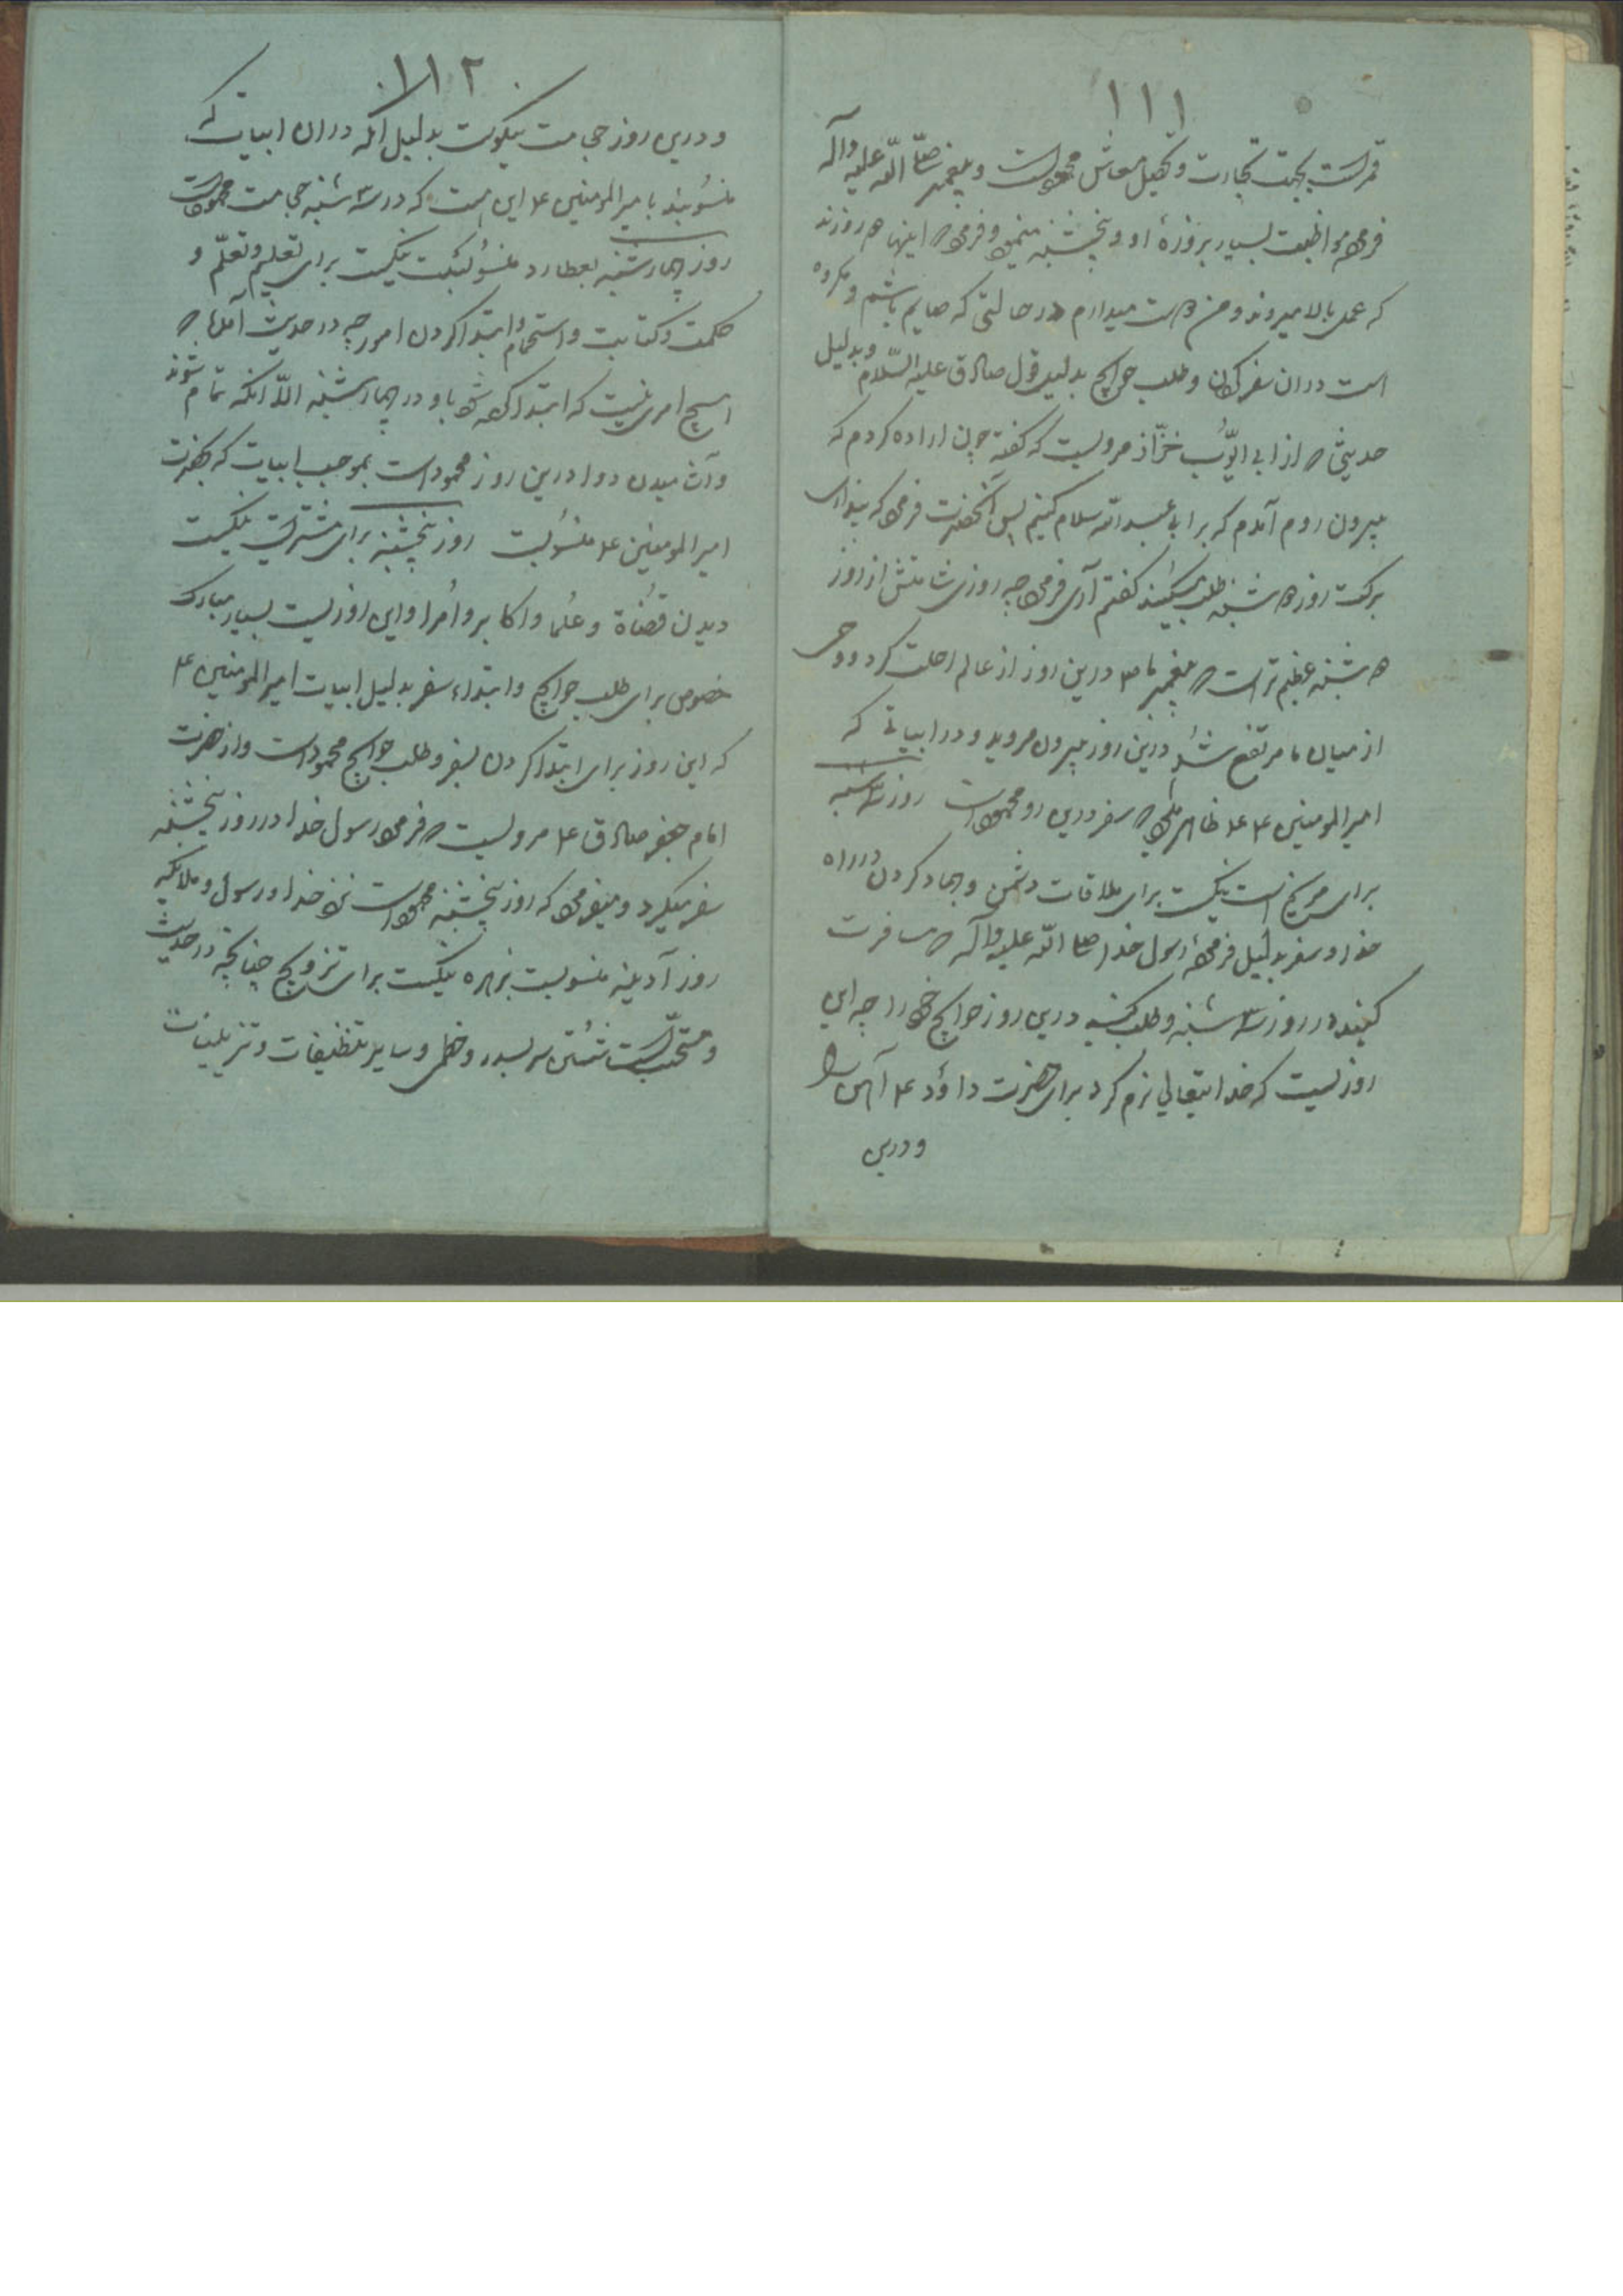 ۱۱۱
قمر است بجهت تجارت و تحصیل معاش محمود است و پیغمبر صلّی اللّه علیه وآله
مواظبت بسیار بروزهٔ او و پنجشنبه و اینها دو روزند
که عمل بالا میروند و من دوست میدارم در حالتی که صایم باشم و مکروه
است دران سفر کردن و طلب حوایج بدلیل قول صادق علیه السّلام و بدلیل
حدیثی که از ابی ایّوب خزّاز مرویست که گفته چون اراده کردم که
بیرون روم آمدم که بر ابی عبد اللّه سلام کنیم پس آنحضرت
برکت روز دوشنبه طلب میکنید گفتم آری چه روزی شامتش از روز
دوشنبه عظیم تر است که پیغمبر ما درین روز از عالم رحلت کرد و وحی
از میان ما مرتفع شد درین روز بیرون مروید و در ابیاتی که
امیر المومنین ع ظاهر که سفر درین روز محمود است روز سه شنبه
برای مریخ است نیکست برای ملاقات دشمن و جهاد کردن در راه
خدا و سفر بدلیل فرمودهٔ رسول خدا صلی اللّه علیه وآله که مسافرت
کنید در روز سه شنبه و طلب کنید درین روز حوایج خود را چه این
روزیست که خدایتعالی نرم کرد برای حضرت داؤد ع آهن را
و درین
۱۱۲
و درین روز حجامت نیکوست بدلیل آنکه دران ابیات که
منسوبند بامیر المومنین ع این است که در سه شنبه حجامت محمود است
روز چهارشنبه بعطارد منسوبست نیکست برای تعلیم و تعلّم و
حکمت و کتابت و استحمام و ابتدا کردن امور چه در حدیث آمده که
هیچ امری نیست که ابتدا کرده شود باو در چهارشنبه الّا آنکه تمام شود
وآشامیدن دوا درین روز محمود است بموجب ابیات که بحضرت
امیر المومنین ع منسوبست روز پنجشنبه برای مشتریست نیکست
دیدن قضاة و علما و اکابر و امرا و این روزیست بسیار مبارک
خصوص برای طلب حوایج و ابتداء سفر بدلیل ابیات امیر المومنین ع
که این روز برای ابتدا کردن بسفر و طلب حوایج محمود است و از حضرت
امام جعفر صادق ع مرویست که رسول خدا در روز پنجشنبه
سفر میکرد و میفرمود که روز پنجشنبه نزد خدا و رسول و ملایکه
روز آدینه منسوبست بزهره نیکست برای تزویج چنانچه در حدیث
و مستحبّست شستن سر بسدر و خطمی و سایر تنظیفات و تزیینات